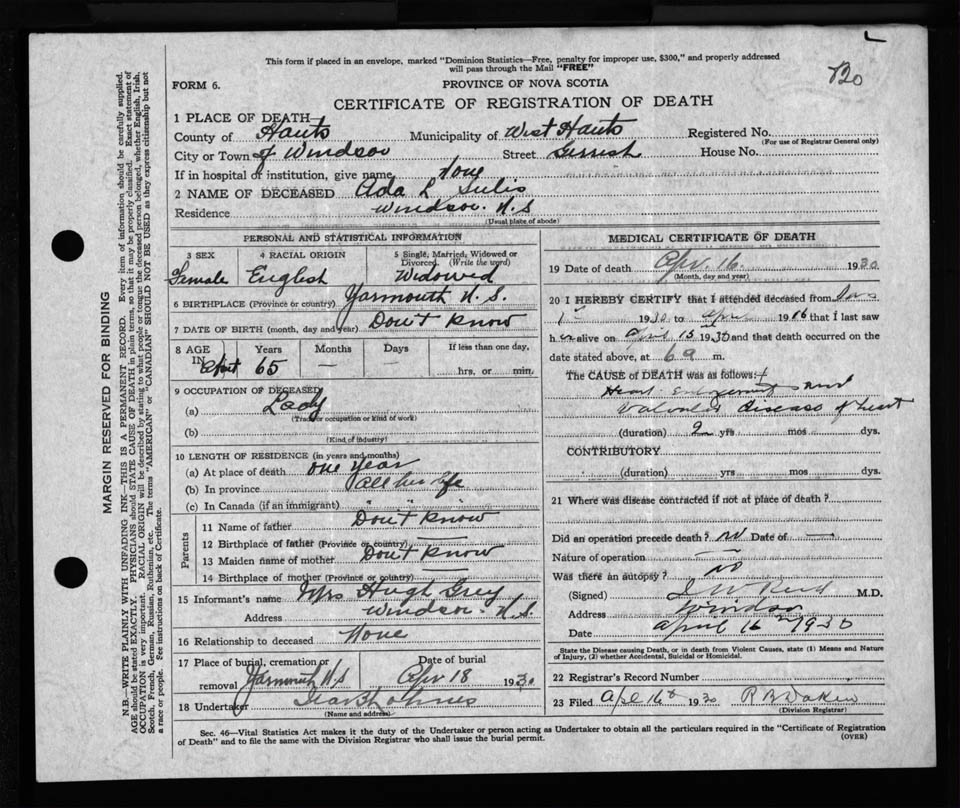 This form if placed in an envelope, marked "Dominion Statistics—Free, penalty for improper use, $300," and properly addressed
will pass through the Mail "FREE"
120
FORM 6.
PROVINCE OF NOVA SCOTIA
CERTIFICATE OF REGISTRATION OF DEATH
1 PLACE OF DEATH
County of Hants Municipality of West Hants Registered No.
(For use of Registrar General only)
City or Town of Windsor Street Gerrish House No.
If in hospital or institution, give name None
2 NAME OF DECEASED Ada L Sulis
Residence Windsor. N.S
(Usual place of abode)
PERSONAL AND STATISTICAL INFORMATION
3 SEX 4 RACIAL ORIGIN 5 Single, Married, Widowed or
Divorced. (Write the word)
Female English Widowed
6 BIRTHPLACE (Province or country) Yarmouth N.S.
7 DATE OF BIRTH (month, day and year) Don't know
8 AGE Years Months Days If less than one day,
IN 65 — hrs. or min.
9 OCCUPATION OF DECEASED
(a) Lady
(Trade occupation or kind of work)
(b)
(Kind of industry)
10 LENGTH OF RESIDENCE (in years and months)
(a) At place of death one year
(b) In province all her life
(c) In Canada (if an immigrant) " " "
Parents
11 Name of father Don't know
12 Birthplace of father (Province or country) —
13 Maiden name of mother Don't know
14 Birthplace of mother (Province or country) —
15 Informant's name Mrs Hugh Grey
Address Windsor. N.S.
16 Relationship to deceased None
17 Place of burial, cremation or Date of burial
removal Yarmouth N.S Apr 18 1930
18 Undertaker
(Name and address)
MEDICAL CERTIFICATE OF DEATH
19 Date of death Apr. 16 1930
(Month, day and year)
20 I HEREBY CERTIFY that I attended deceased from
1930 to Apr 1916 that I last saw
her alive on April 15 1930 and that death occurred on the
date stated above, at 6 a m.
The CAUSE of DEATH was as follows:
Heart Enlargement and
Valvular disease of heart
(duration) 2 yrs mos dys.
CONTRIBUTORY
(duration) yrs mos dys.
21 Where was disease contracted if not at place of death?
Did an operation precede death? no Date of —
Nature of operation —
Was there an autopsy? no
(Signed) Reid M.D.
Address Windsor
Date April 16 1930
State the Disease causing Death, or in death from Violent Causes, state (1) Means and Nature
of Injury, (2) whether Accidental, Suicidal or Homicidal.
22 Registrar's Record Number
23 Filed Apl 16 1930 R B Dakin
(Division Registrar)
Sec. 46—Vital Statistics Act makes it the duty of the Undertaker or person acting as Undertaker to obtain all the particulars required in the "Certificate of Registration
of Death" and to file the same with the Division Registrar who shall issue the burial permit.
(OVER)
MARGIN RESERVED FOR BINDING
N.B.—WRITE PLAINLY WITH UNFADING INK—THIS IS A PERMANENT RECORD. Every item of information should be carefully supplied.
AGE should be stated EXACTLY. PHYSICIANS should STATE CAUSE OF DEATH in plain terms, so that it may be properly classified. Exact statement of
OCCUPATION is very important. RACIAL ORIGIN will be described by stating to what people or tongue the deceased person belonged, whether English, Irish,
Scotch, French, German, Russian, Ruthenian, etc. The terms "AMERICAN" or "CANADIAN" SHOULD NOT BE USED as they express citizenship but not
a race or people. See instructions on back of Certificate.